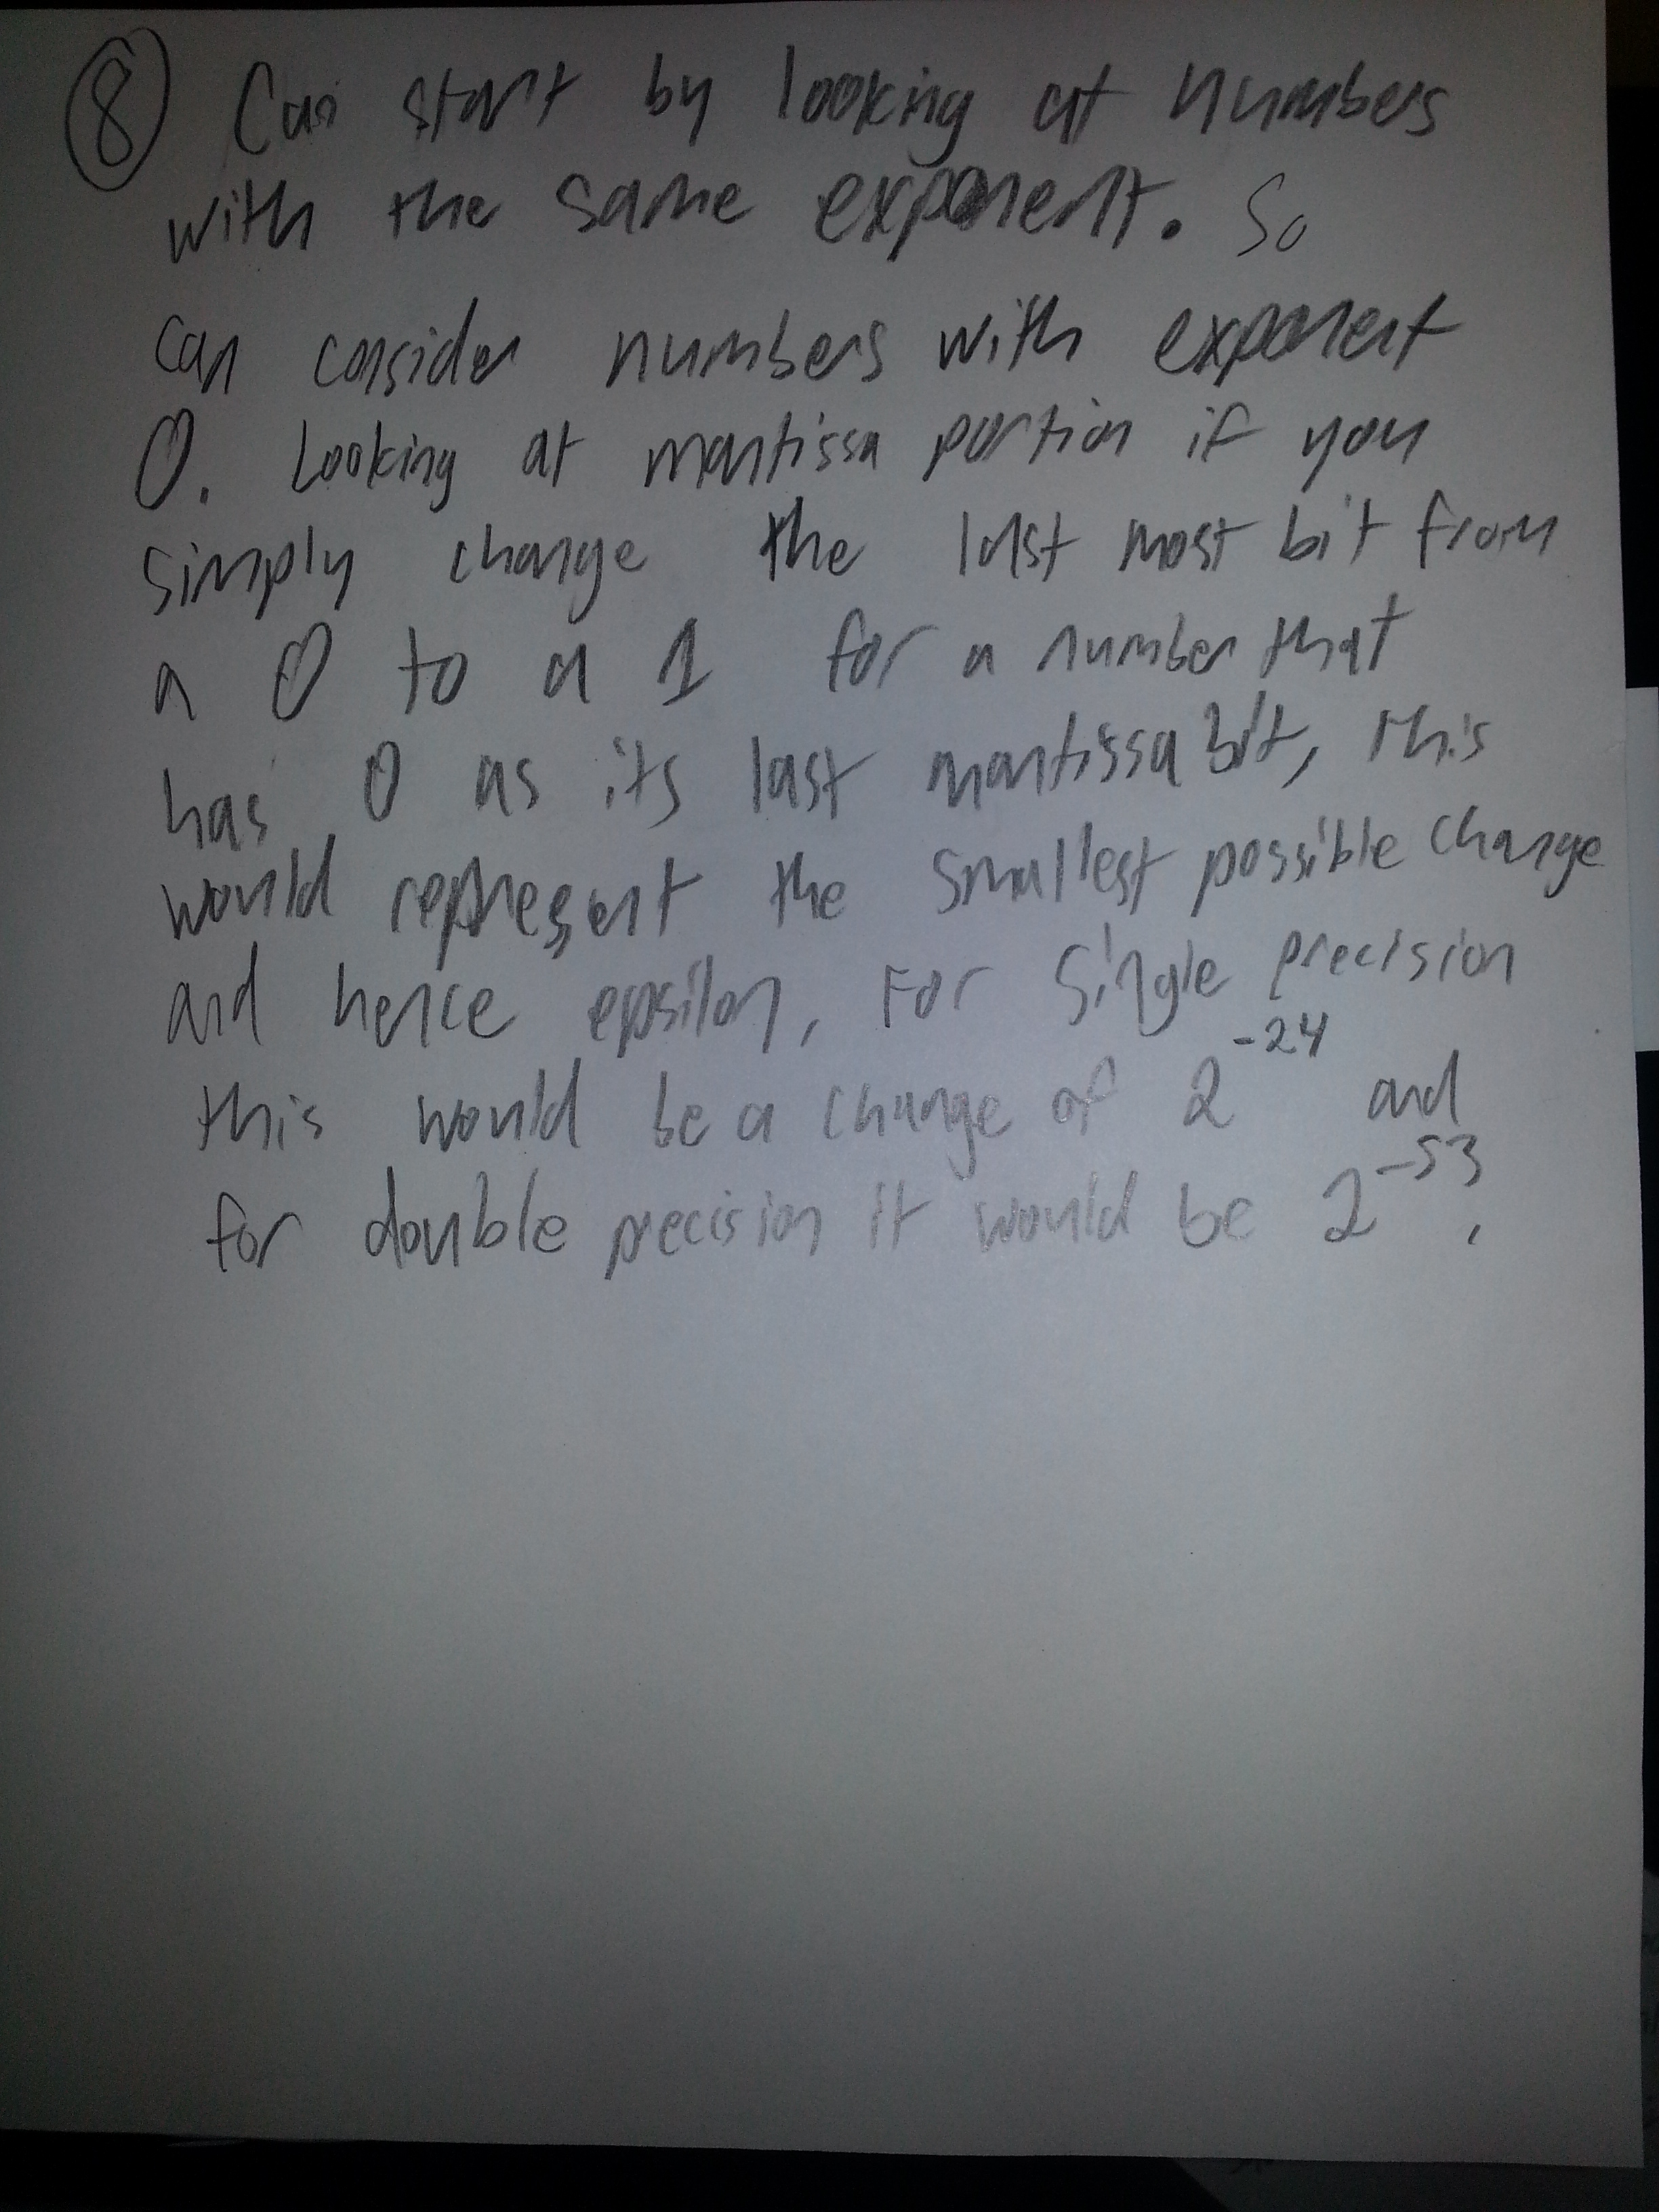 8 Can start by looking at numbers
with the same exponent. So
can consider numbers with exponent
0. Looking at mantissa portion if you
simply change the last most bit from
a 0 to a 1 for a number that
has 0 as its last mantissa bit, this
would represent the smallest possible change
and hence epsilon, For single precision
this would be a change of 2^-24 and
for double precision it would be 2^-53.